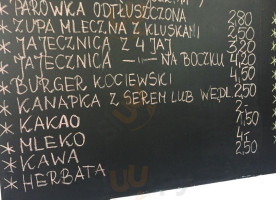 PARÓWKA ODTŁUSZCZONA 2,80
* ZUPA MLECZNA Z KLUSKAMI 2,50
* JAJECZNICA Z 4 JAJ 3,20
* JAJECZNICA —||— NA BOCZKU 4,20
* BURGER KOCIEWSKI 4,50
* KANAPKA Z SEREM LUB WĘDL. 2,50
* KAKAO 2,-
* MLEKO 1,50
* KAWA 4,-
* HERBATA 2,50